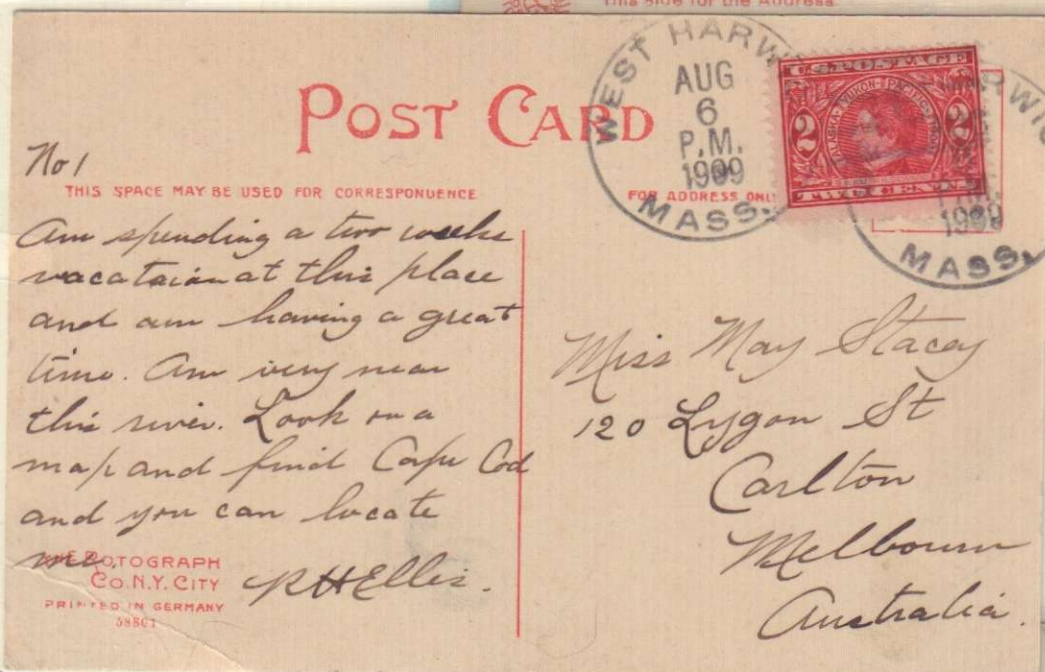 This Side for the Address.
POST CARD
WEST HARW
AUG
6
P.M.
1909
MASS.
U.S. POSTAGE
ALASKA-YUKON-PACIFIC
2 2
TWO CENTS
RWIC
1909
MASS.
No 1
THIS SPACE MAY BE USED FOR CORRESPONDENCE
FOR ADDRESS ONLY
Am spending a two weeks
vacataion at this place
and am having a great
time. Am very near
this river. Look on a
map and find Cape Cod
and you can locate
me.
R H Ellis.
ROTOGRAPH
CO. N.Y. CITY
PRINTED IN GERMANY
Miss May Stacey
120 Lygon St
Carlton
Melbourn
Australia.